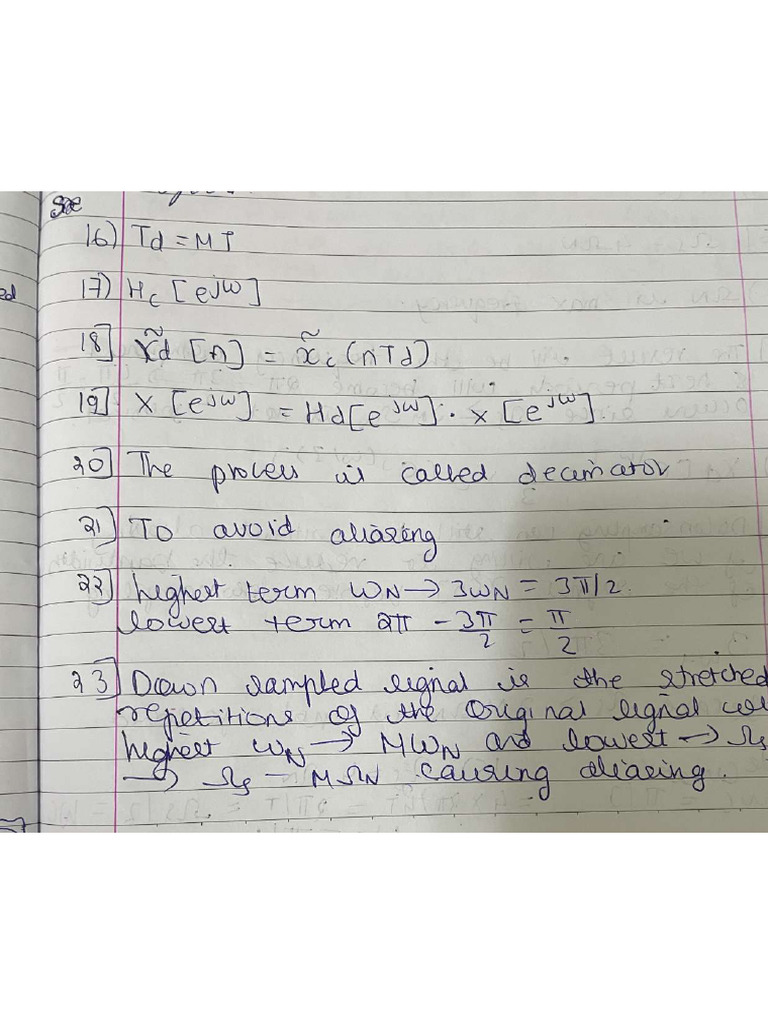 16) Td = MT
17) Hc [e^jω]
18] x̃d [n] = x̃c (nTd)
19] X [e^jω] = Hd[e^jω] . X [e^jω]
20] The process is called decimator
21] To avoid aliasing
22] highest term ωN → 3ωN = 3π/2.
lowest term 2π - 3π/2 = π/2
23] Down sampled signal is the stretched
repetitions of the original signal
highest ωN → MωN and lowest → Ωs
→ Ωs - MΩN causing aliasing.